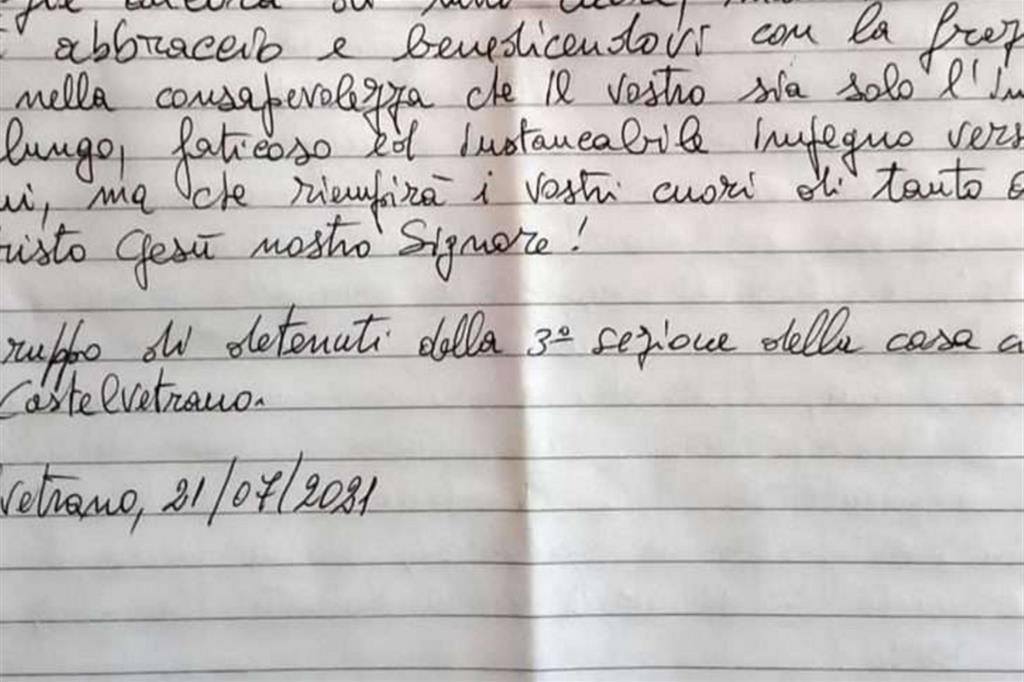 abbraccio e benedicendovi con la
nella consapevolezza che il vostro sia solo l'in
lungo, faticoso ed instancabile impegno vers
ui, ma che riempirà i vostri cuori di tanto
risto Gesù nostro Signore!
ruppo di detenuti della 3ª sezione della casa
Castelvetrano.
vetrano, 21/07/2021